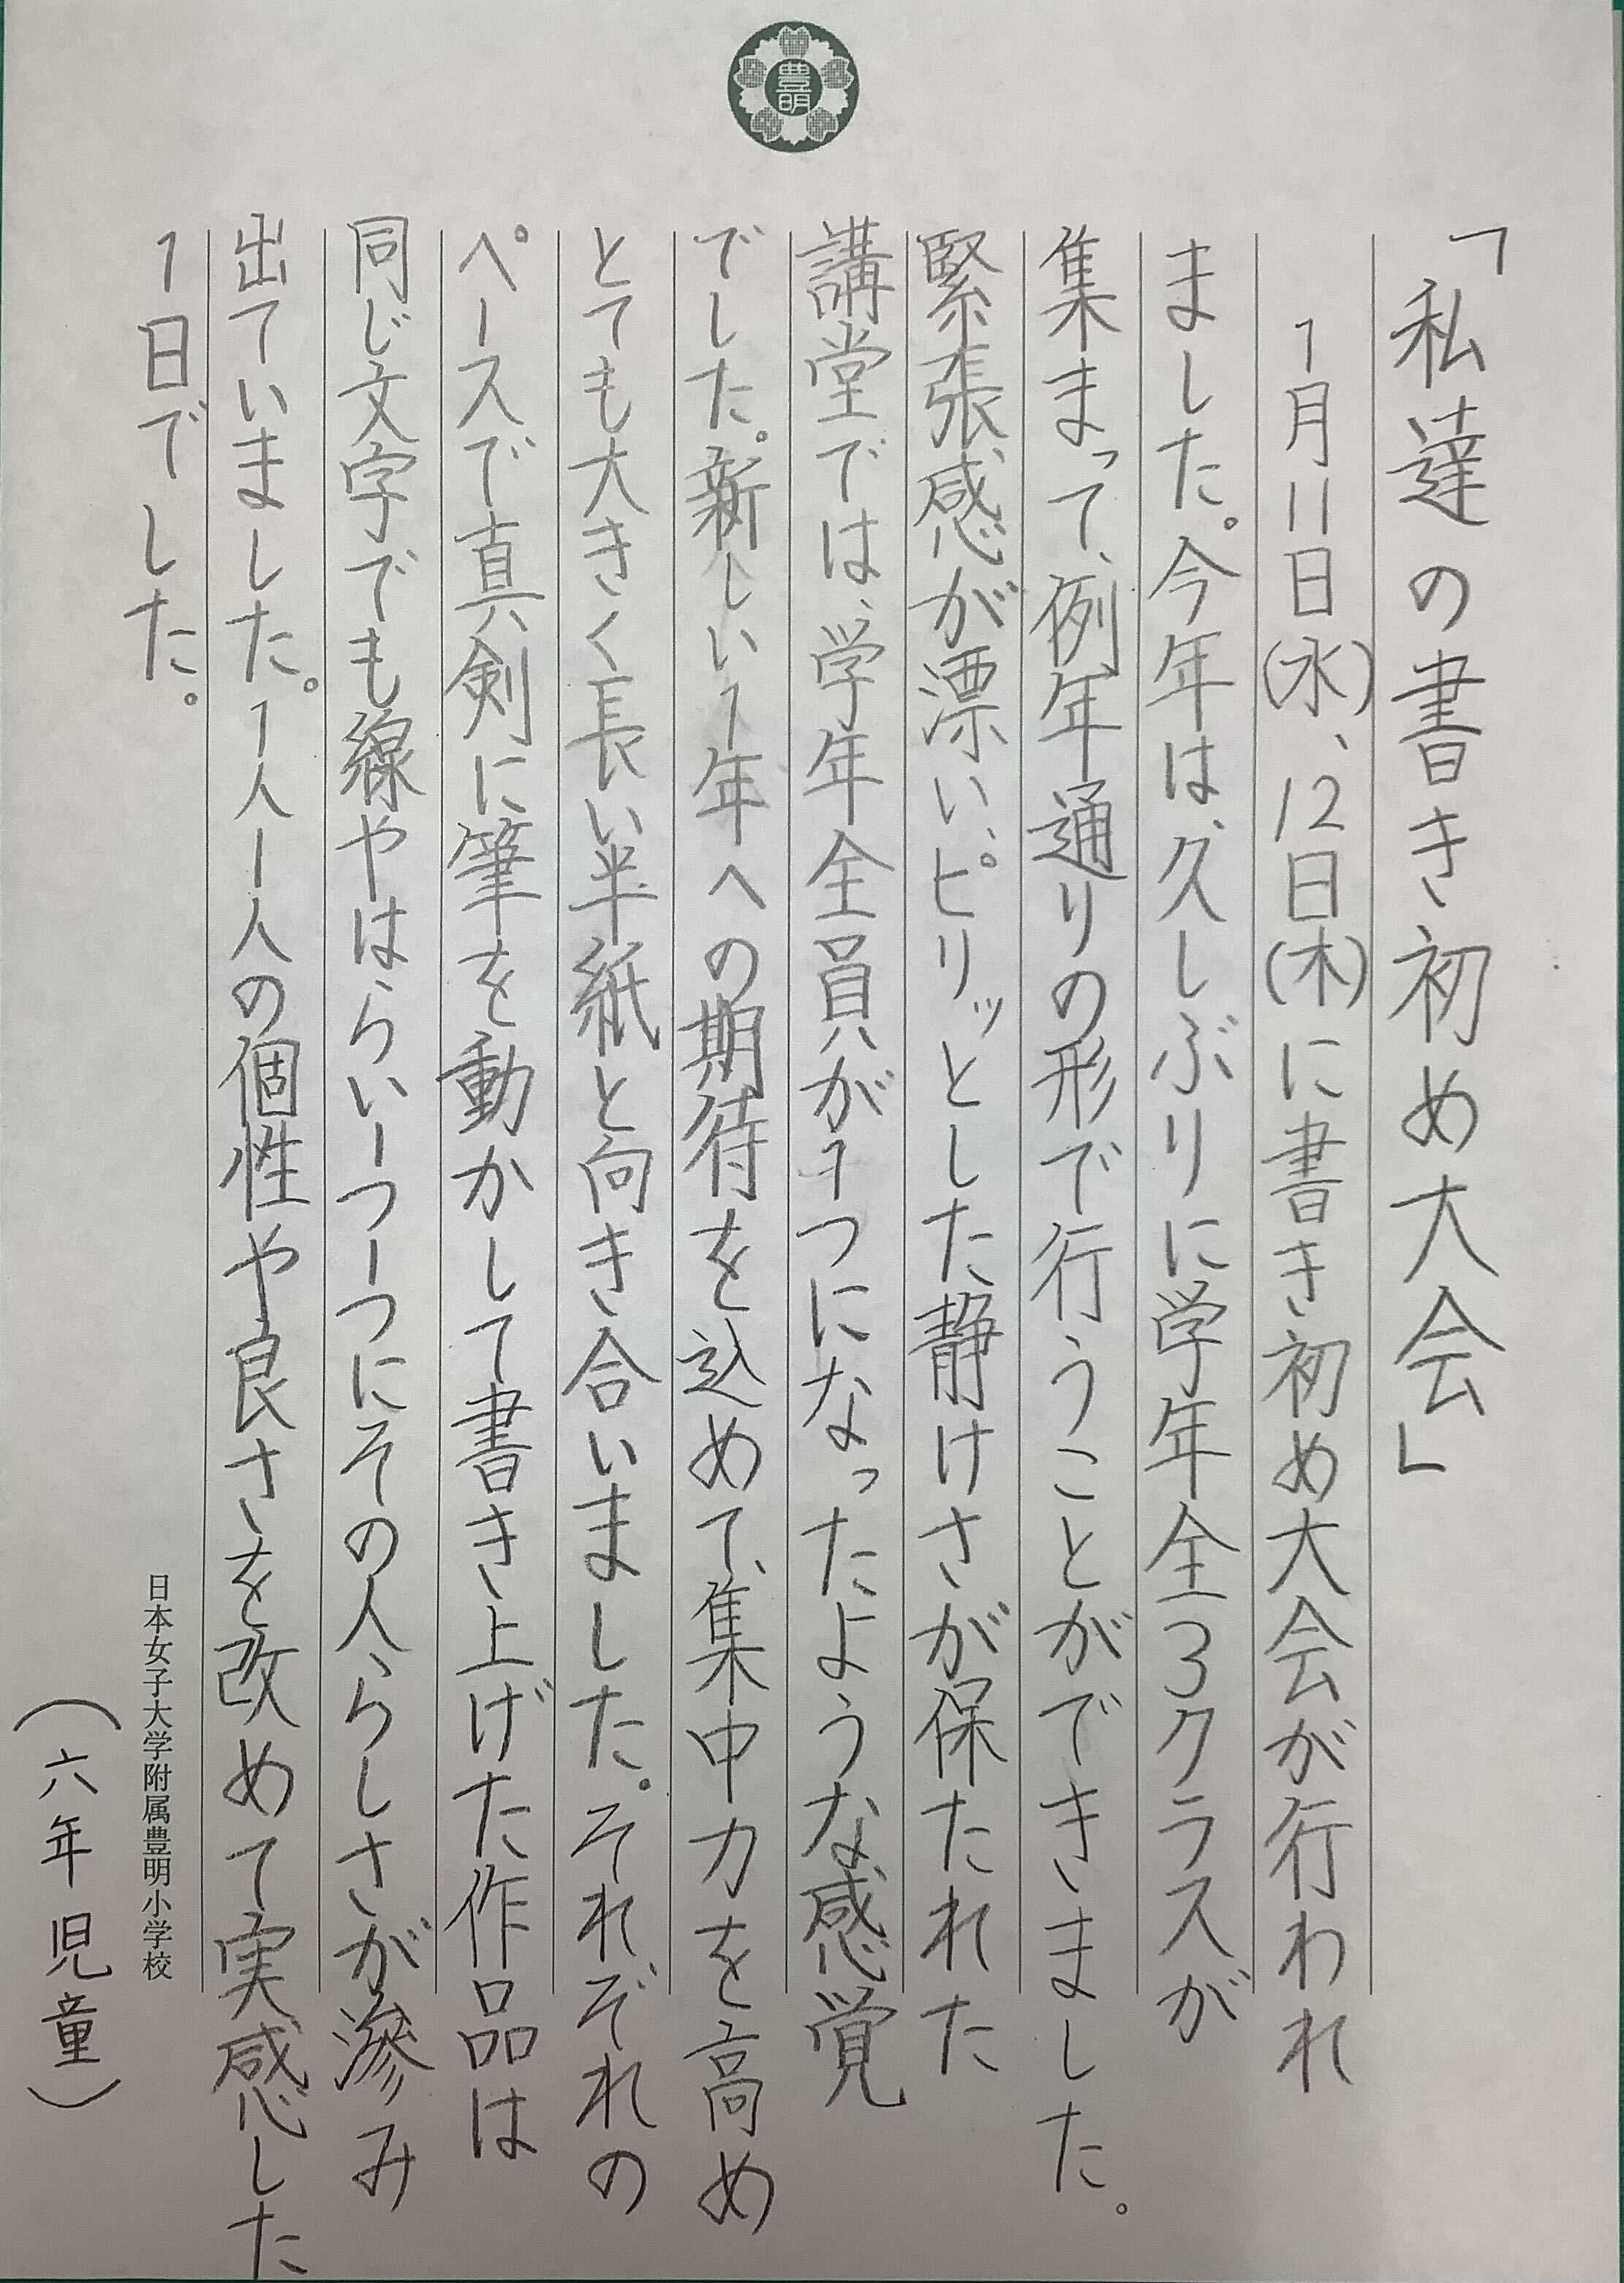 豊明
「私達の書き初め大会」
1月11日(水)、12日(木)に書き初め大会が行われ
ました。今年は、久しぶりに学年全3クラスが
集まって、例年通りの形で行うことができました。
緊張感が漂い、ピリッとした静けさが保たれた
講堂では、学年全員が1つになったような感覚
でした。新しい1年への期待を込めて、集中力を高め
とても大きく長い半紙と向き合いました。それぞれの
ペースで真剣に筆を動かして書き上げた作品は
同じ文字でも線やはらい一つ一つにその人らしさが滲み
出ていました。1人1人の個性や良さを改めて実感した
1日でした。
日本女子大学附属豊明小学校
(六年児童)